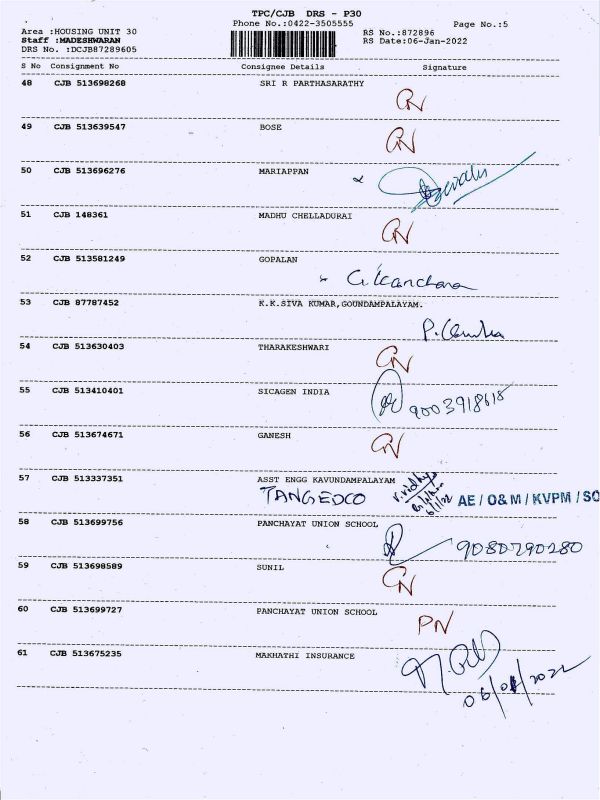 TPC/CJB DRS - P30
Phone No.:0422-3505555
Page No.:5
Area :HOUSING UNIT 30
RS No.:872896
Staff :MADESHWARAN
RS Date:06-Jan-2022
DRS No. :DCJB87289605
S No Consignment No Consignee Details Signature
48 CJB 513698268 SRI R PARTHASARATHY
49 CJB 513639547 BOSE
50 CJB 513696276 MARIAPPAN
51 CJB 148361 MADHU CHELLADURAI
52 CJB 513581249 GOPALAN
53 CJB 87787452 K.K.SIVA KUMAR,GOUNDAMPALAYAM.
54 CJB 513630403 THARAKESHWARI
55 CJB 513410401 SICAGEN INDIA
9003918618
56 CJB 513674671 GANESH
57 CJB 513337351 ASST ENGG KAVUNDAMPALAYAM
TANGEDCO AE / O & M / KVPM / SO
58 CJB 513699756 PANCHAYAT UNION SCHOOL
9080790280
59 CJB 513698589 SUNIL
60 CJB 513699727 PANCHAYAT UNION SCHOOL
PN
61 CJB 513675235 MAKHATHI INSURANCE
06/01/2022